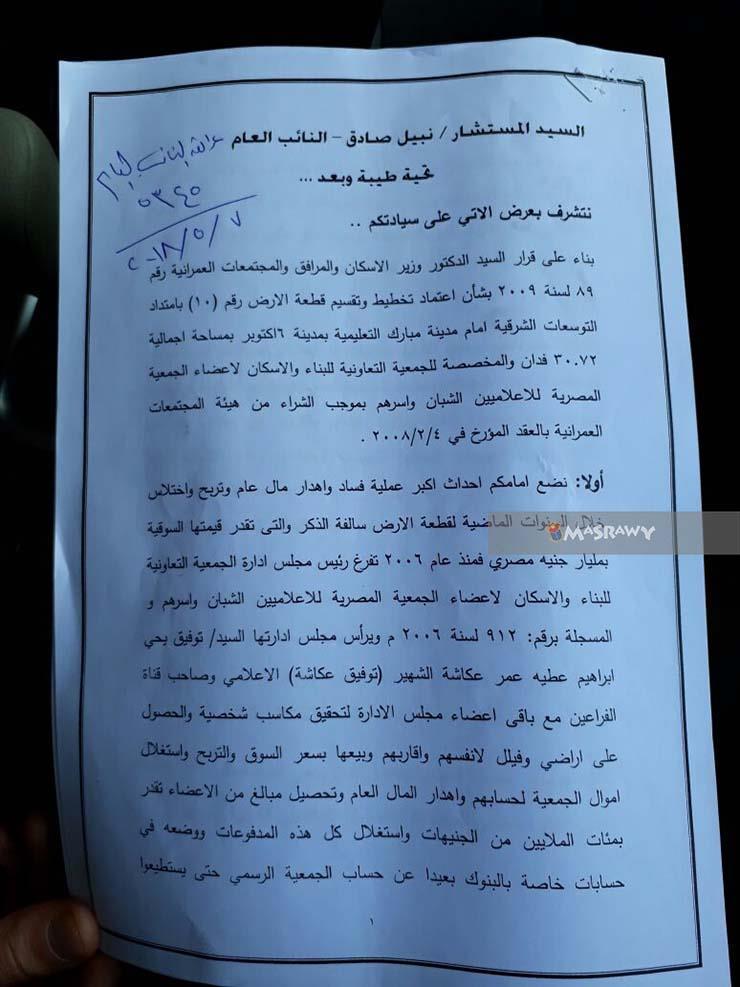 السيد المستشار / نبيل صادق – النائب العام
تحية طيبة وبعد ...
نتشرف بعرض الاتي على سيادتكم ..
عرائض النائب العام
٥٣٤٥
٢٠١٨/٥/٧
بناء على قرار السيد الدكتور وزير الاسكان والمرافق والمجتمعات العمرانية رقم
٨٩ لسنة ٢٠٠٩ بشأن اعتماد تخطيط وتقسيم قطعة الارض رقم (١٠) بامتداد
التوسعات الشرقية امام مدينة مبارك التعليمية بمدينة ٦اكتوبر بمساحة اجمالية
٣٠.٧٢ فدان والمخصصة للجمعية التعاونية للبناء والاسكان لاعضاء الجمعية
المصرية للاعلاميين الشبان واسرهم بموجب الشراء من هيئة المجتمعات
العمرانية بالعقد المؤرخ في ٢٠٠٨/٢/٤ .
أولا: نضع امامكم احداث اكبر عملية فساد واهدار مال عام وتربح واختلاس
خلال السنوات الماضية لقطعة الارض سالفة الذكر والتى تقدر قيمتها السوقية
MASRAWY
بمليار جنيه مصري فمنذ عام ٢٠٠٦ تفرغ رئيس مجلس ادارة الجمعية التعاونية
للبناء والاسكان لاعضاء الجمعية المصرية للاعلاميين الشبان واسرهم و
المسجلة برقم: ٩١٢ لسنة ٢٠٠٦ م ويرأس مجلس ادارتها السيد/ توفيق يحي
ابراهيم عطيه عمر عكاشة الشهير (توفيق عكاشة) الاعلامي وصاحب قناة
الفراعين مع باقى اعضاء مجلس الادارة لتحقيق مكاسب شخصية والحصول
على اراضي وفيلل لانفسهم واقاربهم وبيعها بسعر السوق والتربح واستغلال
اموال الجمعية لحسابهم واهدار المال العام وتحصيل مبالغ من الاعضاء تقدر
بمئات الملايين من الجنيهات واستغلال كل هذه المدفوعات ووضعه في
حسابات خاصة بالبنوك بعيدا عن حساب الجمعية الرسمي حتى يستطيعوا
١